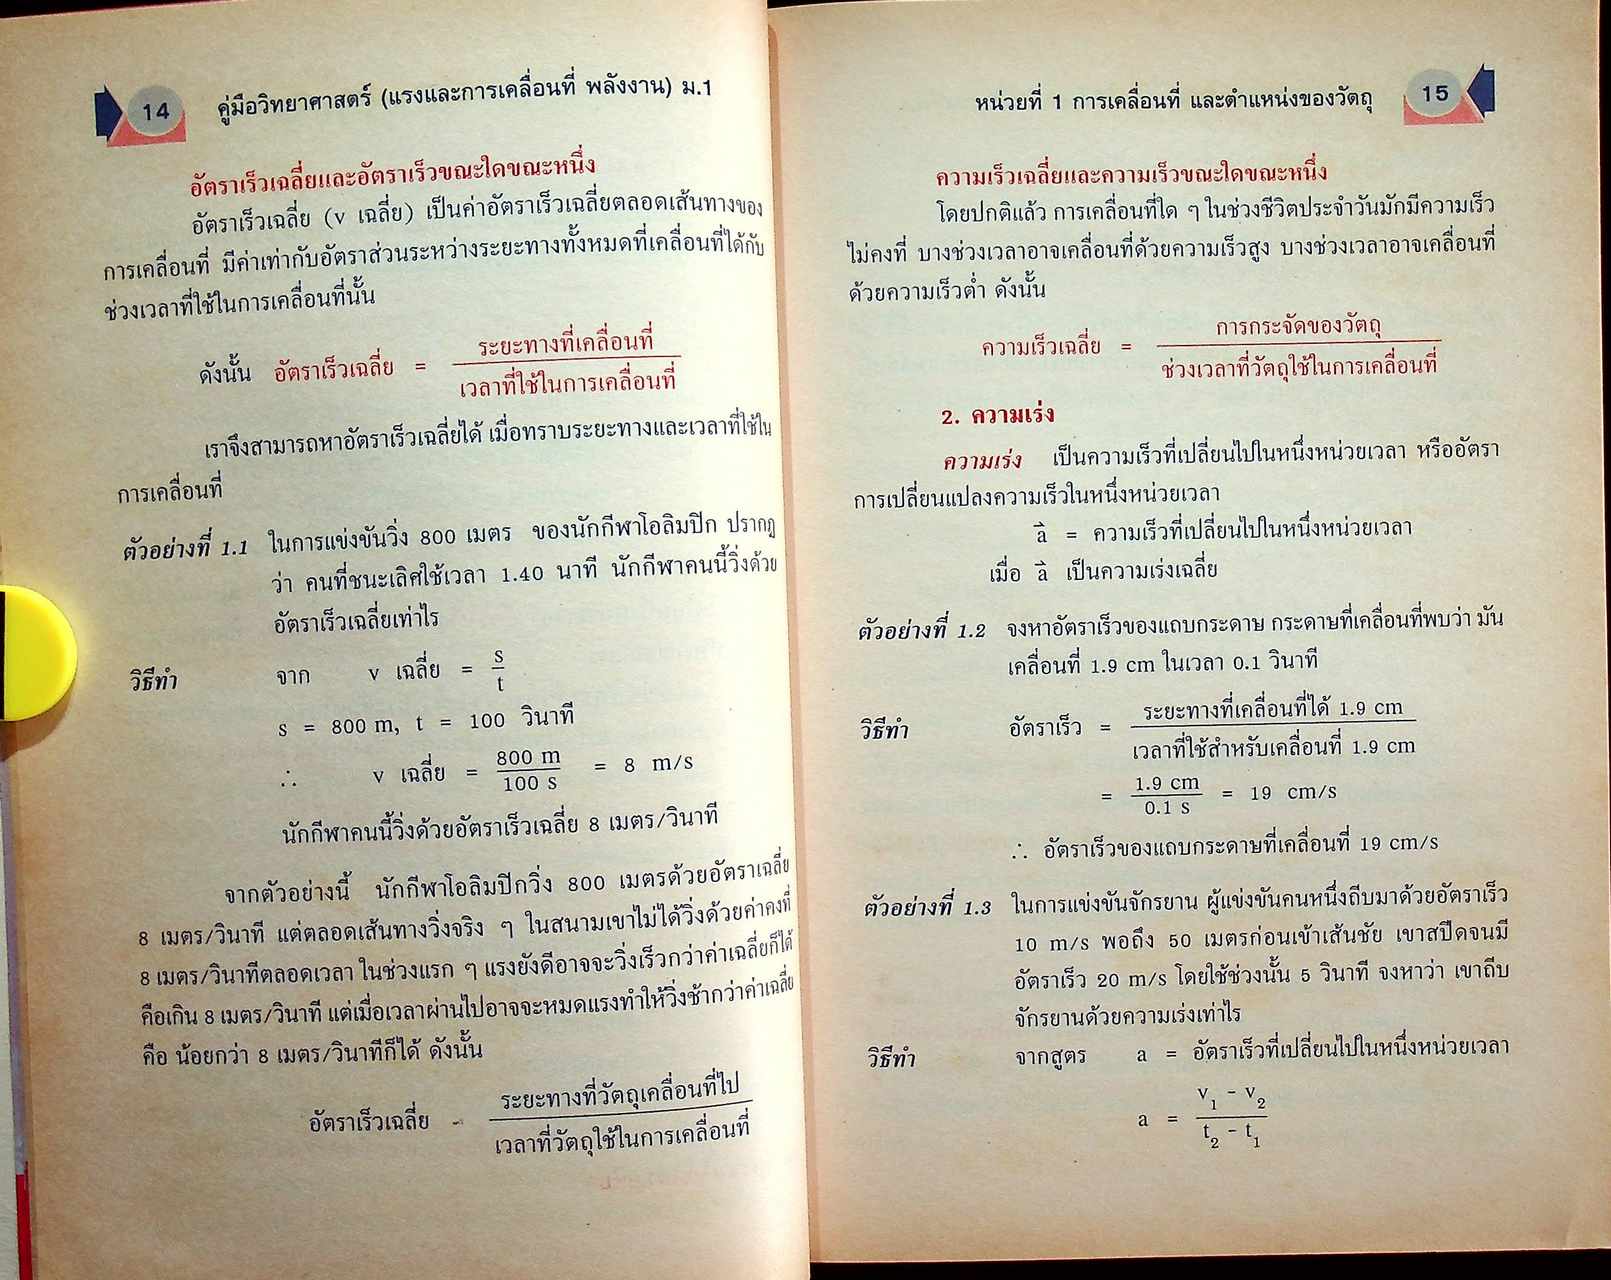 14 คู่มือวิทยาศาสตร์ (แรงและการเคลื่อนที่ พลังงาน) ม.1
อัตราเร็วเฉลี่ยและอัตราเร็วขณะใดขณะหนึ่ง
อัตราเร็วเฉลี่ย (v เฉลี่ย) เป็นค่าอัตราเร็วเฉลี่ยตลอดเส้นทางของ
การเคลื่อนที่ มีค่าเท่ากับอัตราส่วนระหว่างระยะทางทั้งหมดที่เคลื่อนที่ได้กับ
ช่วงเวลาที่ใช้ในการเคลื่อนที่นั้น
ระยะทางที่เคลื่อนที่
ดังนั้น อัตราเร็วเฉลี่ย =
เวลาที่ใช้ในการเคลื่อนที่
เราจึงสามารถหาอัตราเร็วเฉลี่ยได้ เมื่อทราบระยะทางและเวลาที่ใช้ใน
การเคลื่อนที่
ตัวอย่างที่ 1.1 ในการแข่งขันวิ่ง 800 เมตร ของนักกีฬาโอลิมปิก ปรากฏ
ว่า คนที่ชนะเลิศใช้เวลา 1.40 นาที นักกีฬาคนนี้วิ่งด้วย
อัตราเร็วเฉลี่ยเท่าไร
วิธีทำ จาก v เฉลี่ย = s
t
s = 800 m, t = 100 วินาที
∴ v เฉลี่ย = 800 m = 8 m/s
100 s
นักกีฬาคนนี้วิ่งด้วยอัตราเร็วเฉลี่ย 8 เมตร/วินาที
จากตัวอย่างนี้ นักกีฬาโอลิมปิกวิ่ง 800 เมตรด้วยอัตราเฉลี่ย
8 เมตร/วินาที แต่ตลอดเส้นทางวิ่งจริง ๆ ในสนามเขาไม่ได้วิ่งด้วยค่าคงที่
8 เมตร/วินาทีตลอดเวลา ในช่วงแรก ๆ แรงยังดีอาจจะวิ่งเร็วกว่าค่าเฉลี่ยก็ได้
คือเกิน 8 เมตร/วินาที แต่เมื่อเวลาผ่านไปอาจจะหมดแรงทำให้วิ่งช้ากว่าค่าเฉลี่ย
คือ น้อยกว่า 8 เมตร/วินาทีก็ได้ ดังนั้น
ระยะทางที่วัตถุเคลื่อนที่ไป
อัตราเร็วเฉลี่ย =
เวลาที่วัตถุใช้ในการเคลื่อนที่
หน่วยที่ 1 การเคลื่อนที่ และตำแหน่งของวัตถุ 15
ความเร็วเฉลี่ยและความเร็วขณะใดขณะหนึ่ง
โดยปกติแล้ว การเคลื่อนที่ใด ๆ ในช่วงชีวิตประจำวันมักมีความเร็ว
ไม่คงที่ บางช่วงเวลาอาจเคลื่อนที่ด้วยความเร็วสูง บางช่วงเวลาอาจเคลื่อนที่
ด้วยความเร็วต่ำ ดังนั้น
การกระจัดของวัตถุ
ความเร็วเฉลี่ย =
ช่วงเวลาที่วัตถุใช้ในการเคลื่อนที่
2. ความเร่ง
ความเร่ง เป็นความเร็วที่เปลี่ยนไปในหนึ่งหน่วยเวลา หรืออัตรา
การเปลี่ยนแปลงความเร็วในหนึ่งหน่วยเวลา
a⃗ = ความเร็วที่เปลี่ยนไปในหนึ่งหน่วยเวลา
เมื่อ a⃗ เป็นความเร่งเฉลี่ย
ตัวอย่างที่ 1.2 จงหาอัตราเร็วของแถบกระดาษ กระดาษที่เคลื่อนที่พบว่า มัน
เคลื่อนที่ 1.9 cm ในเวลา 0.1 วินาที
วิธีทำ อัตราเร็ว = ระยะทางที่เคลื่อนที่ได้ 1.9 cm
เวลาที่ใช้สำหรับเคลื่อนที่ 1.9 cm
= 1.9 cm = 19 cm/s
0.1 s
∴ อัตราเร็วของแถบกระดาษที่เคลื่อนที่ 19 cm/s
ตัวอย่างที่ 1.3 ในการแข่งขันจักรยาน ผู้แข่งขันคนหนึ่งถีบมาด้วยอัตราเร็ว
10 m/s พอถึง 50 เมตรก่อนเข้าเส้นชัย เขาสปีดจนมี
อัตราเร็ว 20 m/s โดยใช้ช่วงนั้น 5 วินาที จงหาว่า เขาถีบ
จักรยานด้วยความเร่งเท่าไร
วิธีทำ จากสูตร a = อัตราเร็วที่เปลี่ยนไปในหนึ่งหน่วยเวลา
a = v₁ - v₂
t₂ - t₁